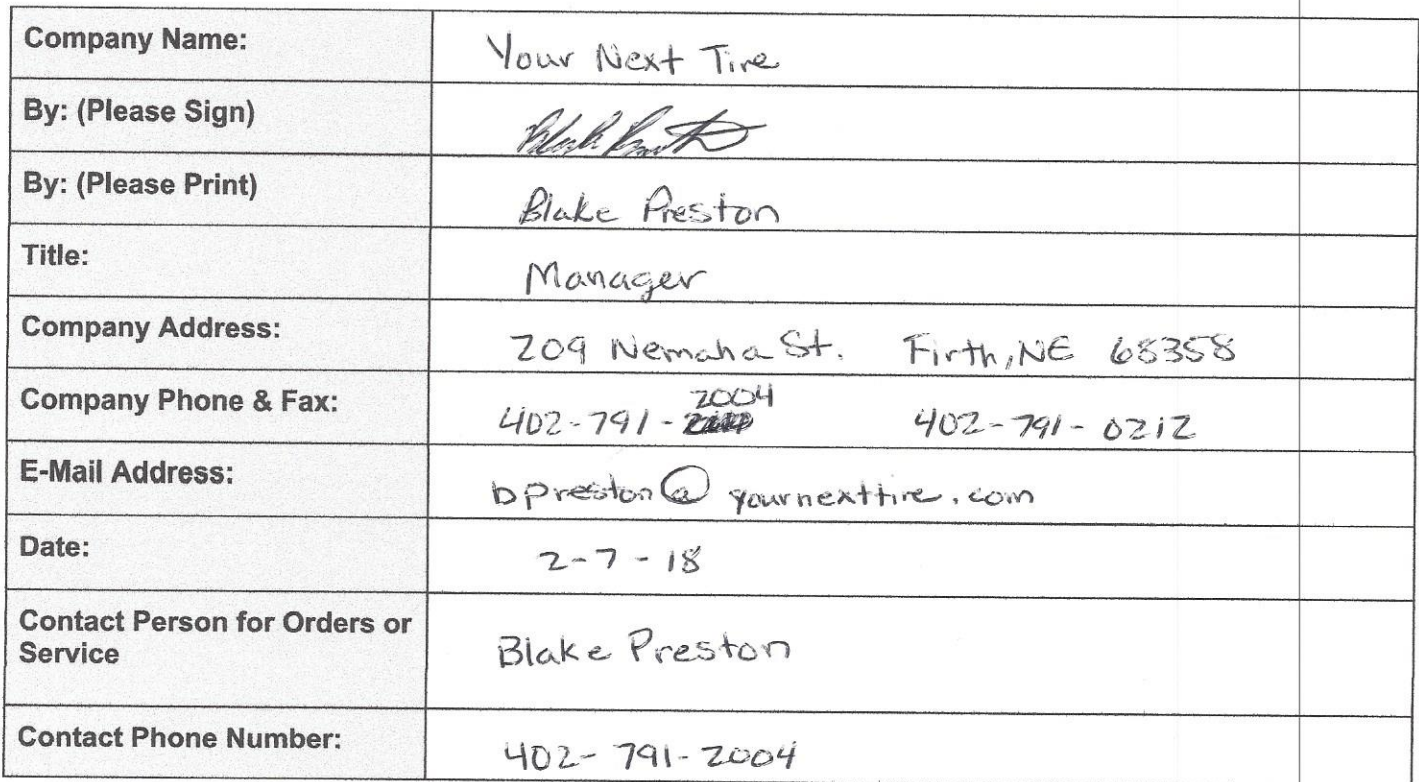 Company Name: Your Next Tire
By: (Please Sign)
By: (Please Print) Blake Preston
Title: Manager
Company Address: 209 Nemaha St. Firth, NE 68358
2004
Company Phone & Fax: 402-791- 402-791-0212
E-Mail Address: bpreston@yournexttire.com
Date: 2-7-18
Contact Person for Orders or
Service Blake Preston
Contact Phone Number: 402-791-2004